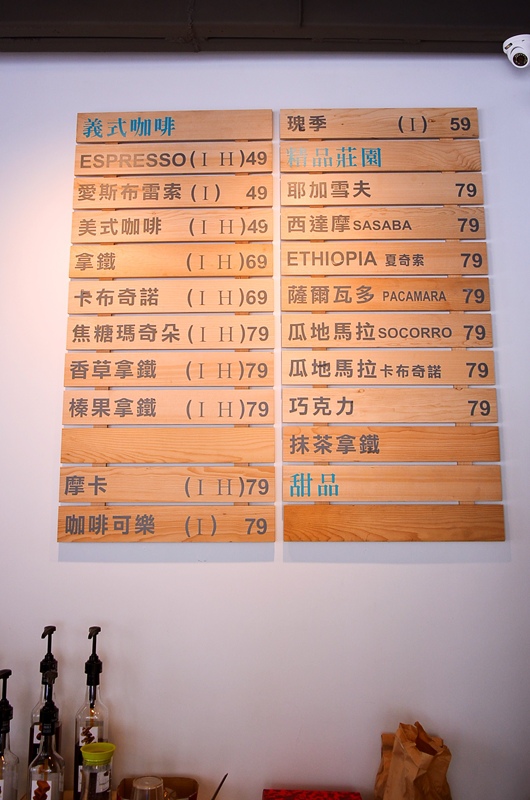 義式咖啡
ESPRESSO(I H)49
愛斯布雷索(I) 49
美式咖啡 (I H)49
拿鐵 (I H)69
卡布奇諾 (I H)69
焦糖瑪奇朵(I H)79
香草拿鐵 (I H)79
榛果拿鐵 (I H)79
摩卡 (I H)79
咖啡可樂 (I) 79
瑰季 (I) 59
精品莊園
耶加雪夫 79
西達摩SASABA 79
ETHIOPIA 夏奇索 79
薩爾瓦多 PACAMARA 79
瓜地馬拉SOCORRO 79
瓜地馬拉卡布奇諾 79
巧克力 79
抹茶拿鐵
甜品